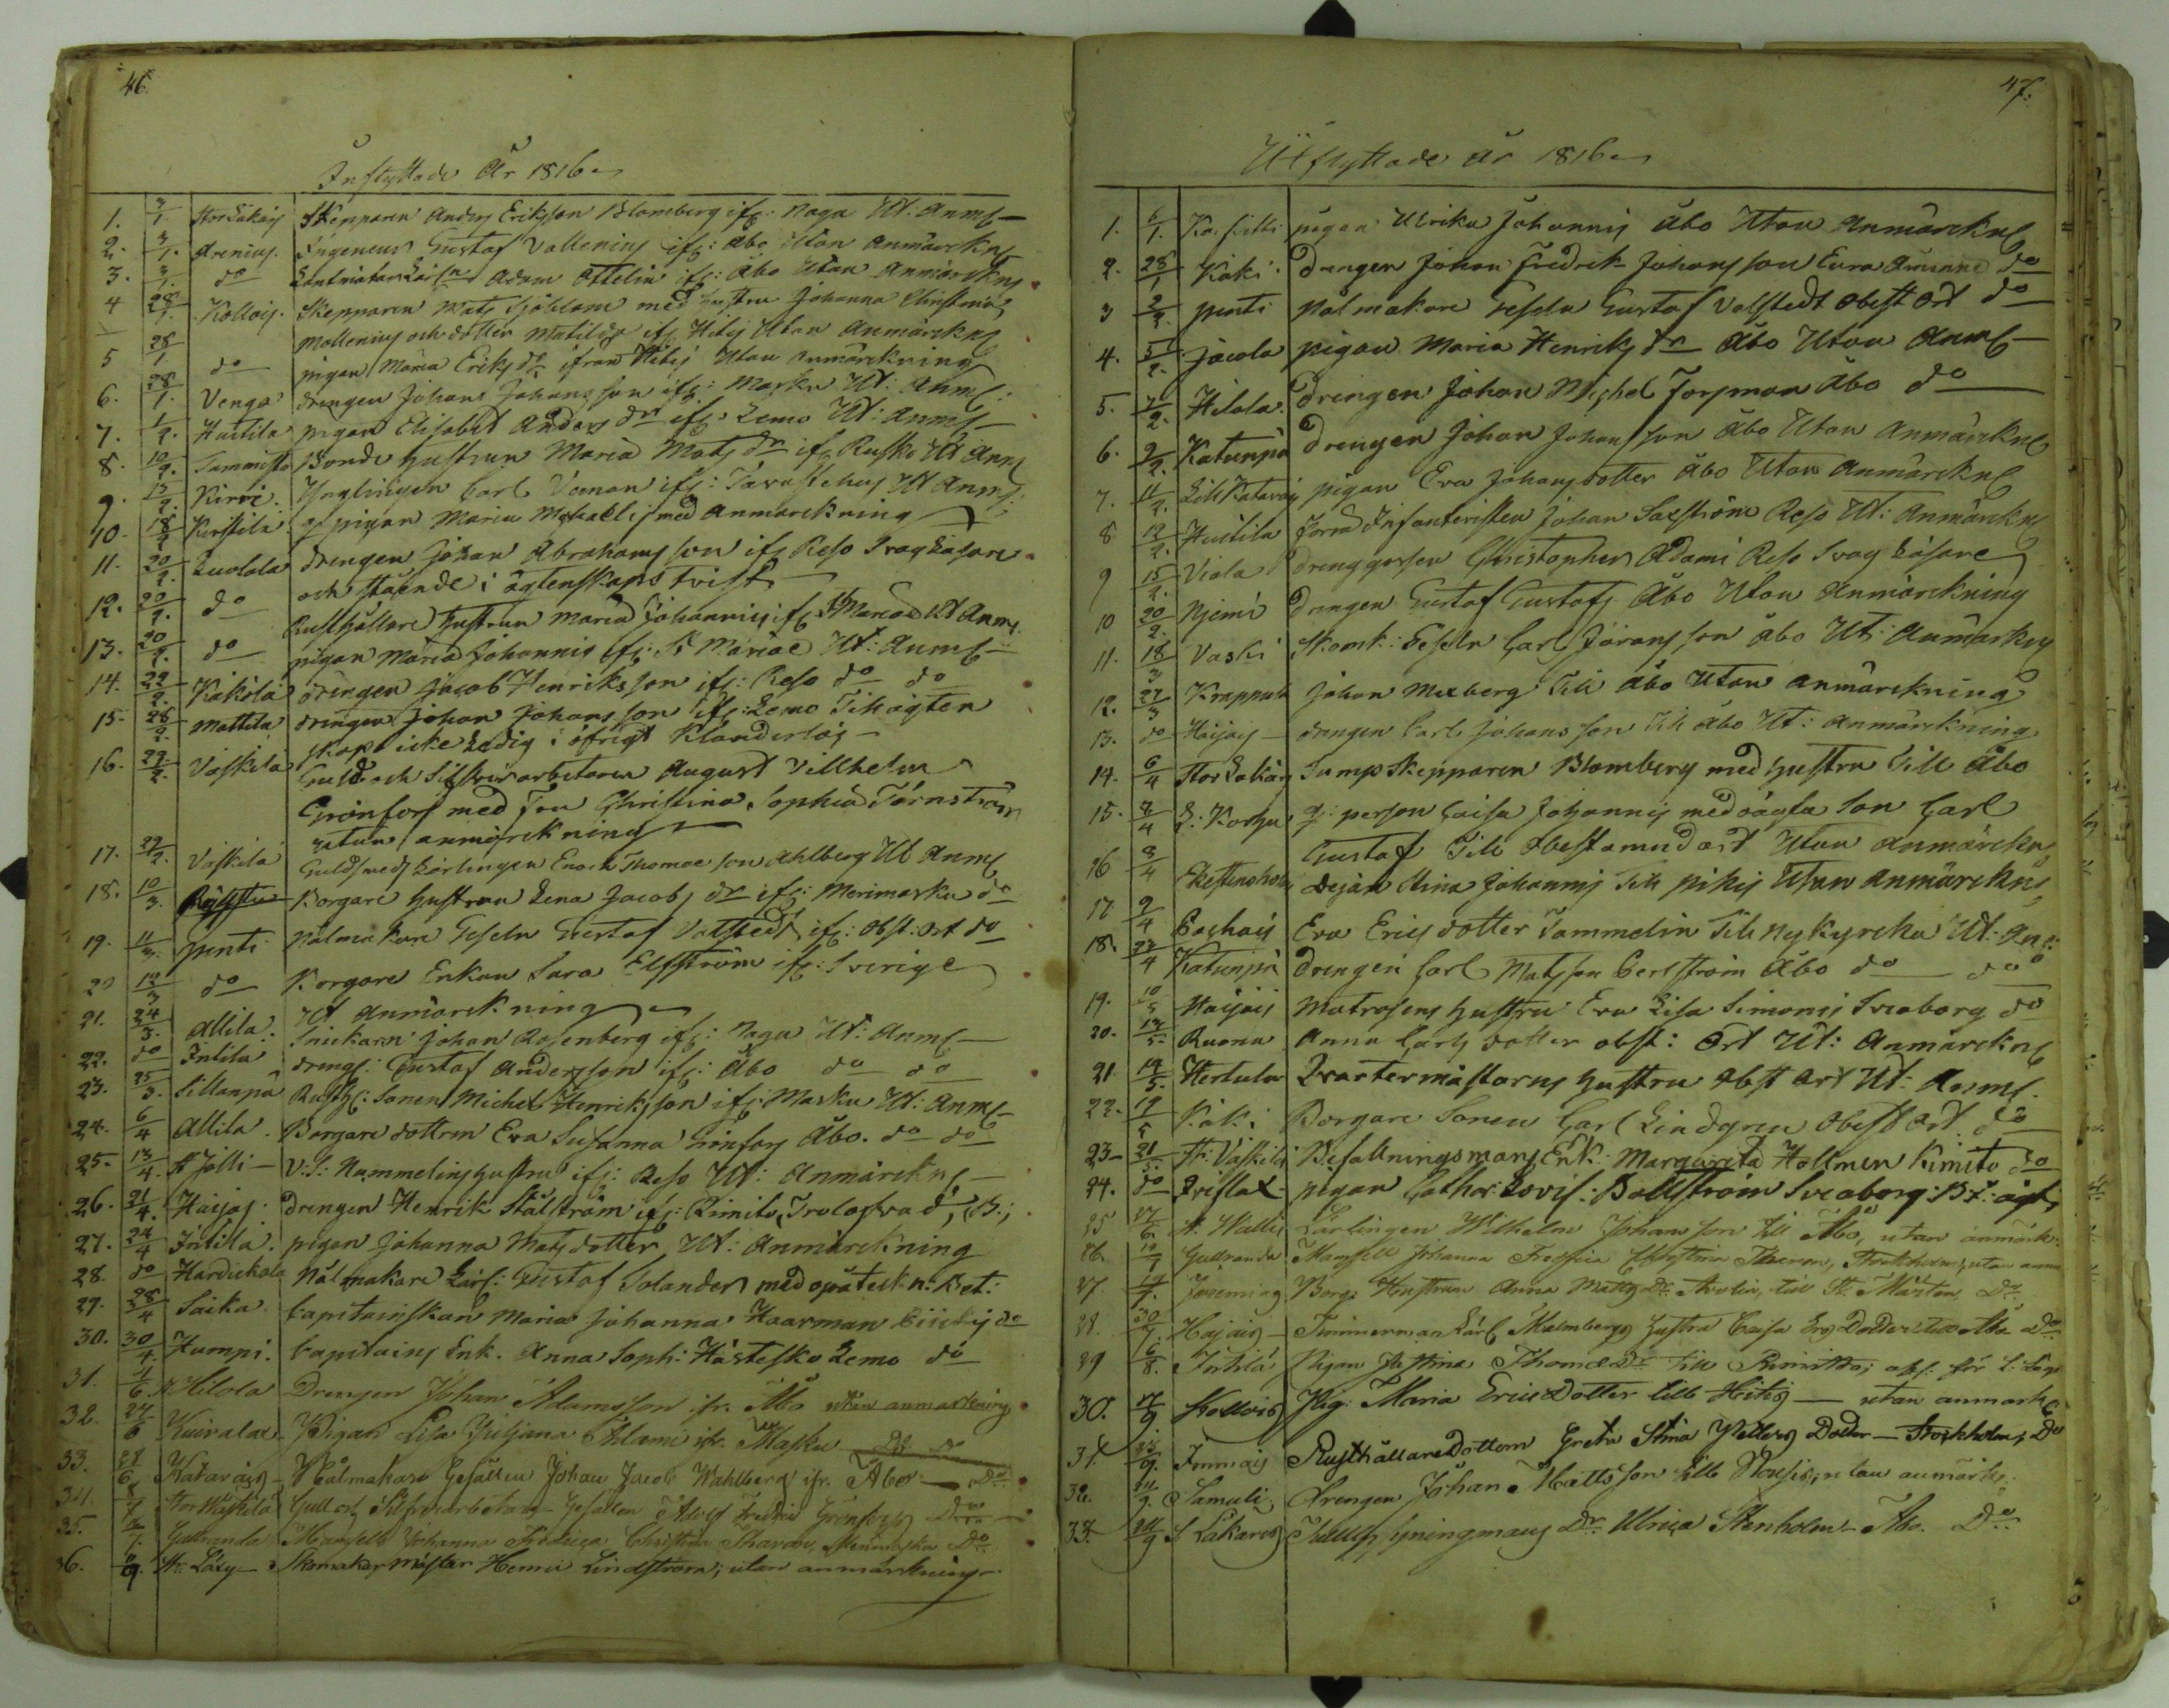 46.
Inflyttade År 1816.
1. 3/1. StorLakarj Skepparen Anders Eriksson Blomberg ifr: Naga Ut. Anm
2. 3/1. Arenius. Ingeneur Gustaf Vallenius ifr: Åbo Utan Anmärckng
3. 3/1. do Adam Ottelin ifr: Åbo Utan Anmärckng
4 28/1. Kollois. Skepparen Mats Sjöblom med hustru Johanna Christina
Mollenius och dotter Matilda ifr Hitis Utan Anmärckng
5 28/1 do pigan Maria Eriks dr ifrån Hitis Utan Anmärckning
6. 28/1. Venga drengen Johans Johansson ifr: Masku Ut: Anm:
7. 1/2. Huitila pigan Elisabet Anders dr ifr Lemo Ut: Anm
8. 10/2. Tammisto Bonde hustrun Maria Mats dr ifr Rusko Ut Anm
9. 15/2. Kirvi. Ynglingen Carl Veman ifr: Tavastehus Ut Anm:
10. 18/2 Kerstila q pigan Maria Michaelis med Anmärckning
11. 20/2. Luolala drengen Johan Abrahamsson ifr Reso Svag Läsare
och stående i ägtenskaps tvist
12. 20/2. do Rusthållare hustrun Maria Johannis ifr St Mariæ Ut Anm.
13. 20/2. do pigan Maria Johannis ifr: St Mariæ Ut: Anm
14. 22/2. Kakola drengen Jacob Henriksson ifr: Reso do do
15. 28/2. Mattila drengen Johan Johansson ifr: Lemo Til ägten
skap icke Ledig i öfrigt Klanderlös
16. 29/2. Vaskila Guld och Silfverarbetaren August Villhelm
Grönfors med Fru Christina Sophia Törnström
utan anmärckning
17. 29/2. Vaskila Guldsmeds Lärlingen Enoch Thomæ son Ahlberg Ut Anm
18. 10/3. Borgare hustrun Lena Jacobs dr ifr: Merimasku do
19. 11/3. Penti Nålmakare Geseln Gustaf Valstedt ifr: Obst: Ort do
20 12/3 do Borgare Enkan Sara Elgström ifr: Sverige
Ut Anmärckning
21. 24/3. Allila. Snickaren Johan Rosenberg ifr: Naga Ut: Anm
22. do Intila drengs: Gustaf Andersson ifr: Åbo do do
23. 25/3. Sillanpä Rusth: Sonen Michel Henriksson ifr: Masku Ut: Anm
24. 6/4 Allila. Borgare dottren Eva Susanna Grönfors Åbo. do do
25. 13/4. St Jälli V:S: Nummelins hustru ifr: Reso Ut: Anmärckng
26. 21/4. Haijas. drengen Henrik Stålström ifr: Rimito,
27. 24/4 Intila. pigan Johanna Mats dotter, Ut: Anmärckning
28. do Hardickala Nålmakare Lärl: Gustaf Solander med opåteckn: Bet:
29. 28/4 Saika. Capitainskan Maria Johanna Haarman do
30. 30/4. Kumpi. Capitains Enk. Anna Soph: Hästesko Lemo do
31. 1/6 Hilola Drengen Johan Adamsson ifr. Åbo utan anmärkning
32. 24/6 Kuiralax Pigan Lisa Juljana Adami ifr. Masku do
33. 28/6. Katavais Nålmakare Gesällen Johan Jacob Wahlberg ifr. Åbo Do
34. 8/7 StorWaskila Gull och Silfverarbetare Gesällen Adolf Fredric Grönfors Do
35. Gullranda Mamsell Johanna Fredrica Christina Thavon, Merimasku Do
36. /9. Skomakar mästar Henric Lindström; utan anmärkning
47.
Utflyttade år 1816.
1. 6/1. pigan Ulrika Johannis Åbo Utan Anmärckng
2. 28/1 Kaki. Drengen Johan Fredrik Johansson Eura Åminne do
3 2/2. Penti Nålmakare Geseln Gustaf Valstedt obest Ort do
4. 5/2. Jacola pigan Maria Henriks dr Åbo Utan Anm
5. 7/2. Hilola. Drengen Johan Michel Forsman Åbo do
6. 9/2. Katunpä Drengen Johan Johansson Åbo Utan Anmärckng
7. 11/2. LillKatavais pigan Eva Johans dotter Åbo Utan Anmärckng
8 12/2. Huitila Förra Infanteristen Johan Saxström Reso Ut: Anmärckng
9 15/2. Viala drenggossen Christopher Adami Reso Svag Läsare
10 20/2. Niemi Drengen Gustaf Gustafs Åbo Utan Anmärckning
11. 18/3 Vaski Skomk: Geseln Carl Göransson Åbo Ut: Anmärckng
12. 27/3 Krappula Johan Maxberg Till Åbo Utan Anmärckning
13. do Haijais drengen Carl Johansson Till Åbo Ut: Anmärckning
14. 6/4 StorLakars Sumpskepparen Blomberg med hustru Till Åbo
15. 8/4 L: Korhu q: person Caisa Johannis med oägta Son Carl
Gustaf Till Obestämnd Ort Utan Anmärckng
16 8/4 Dejan Stina Johannis Till Pikis Utan Anmärckng
17 9/4 Eva Erics dotter Tammelin Till Nykyrcka Ut: An:
18. 27/4 Katunpä Drengen Carl Matsson Cerlström Åbo do do
19. 10/5 Haijais Matrosens hustru Eva Lisa Simonis Sveaborg do
20. 14/5. Ruona Anna Carls dotter obst: Ort Ut: Anmärckng
21 14/5. Hertula Qvartermästarens hustru Obst Ort Ut: Anm.
22. 19/5 Kaki Borgare Sonen Carl Lindgren Obest Ort do
23 21/5. St: Vaskila Befallningsmans Enk: Margareta Hollmen Kimito do
24. do Fristax pigan Cathar: Lovis: Bollström Sveaborg: Bf: ägt;
25 27/6. Lärlingen Wilhelm Johansson till Åbo, utan anmärk:
26. Gullranda Mamsell Johanna Fredrica Christina Thavon, Stockholm; utan anm
27. Borg: Hustrun Anna Matts Dr till St Mårten Do
28. 30/7. Hajais Timmerman Lärl Malmbergs hustru Caisa Ers Dotter till Åbo Do
29 6/8. Intila Pigan Justina Thomæ Dr till Rimitto;
30. 17/9 Kollois Pig: Maria Erics Dotter till Hitis utan anmärk
31. 23/9. Immais Rusthållare Dottern Greta Stina Dotter Stockholm; Do
32. 24/9. Samuli. Drengen Johan Mattsson till Nousis; utan anmärk
33. 24/9 S Lakars Dr Ulrica Stenholm Åbo. Do